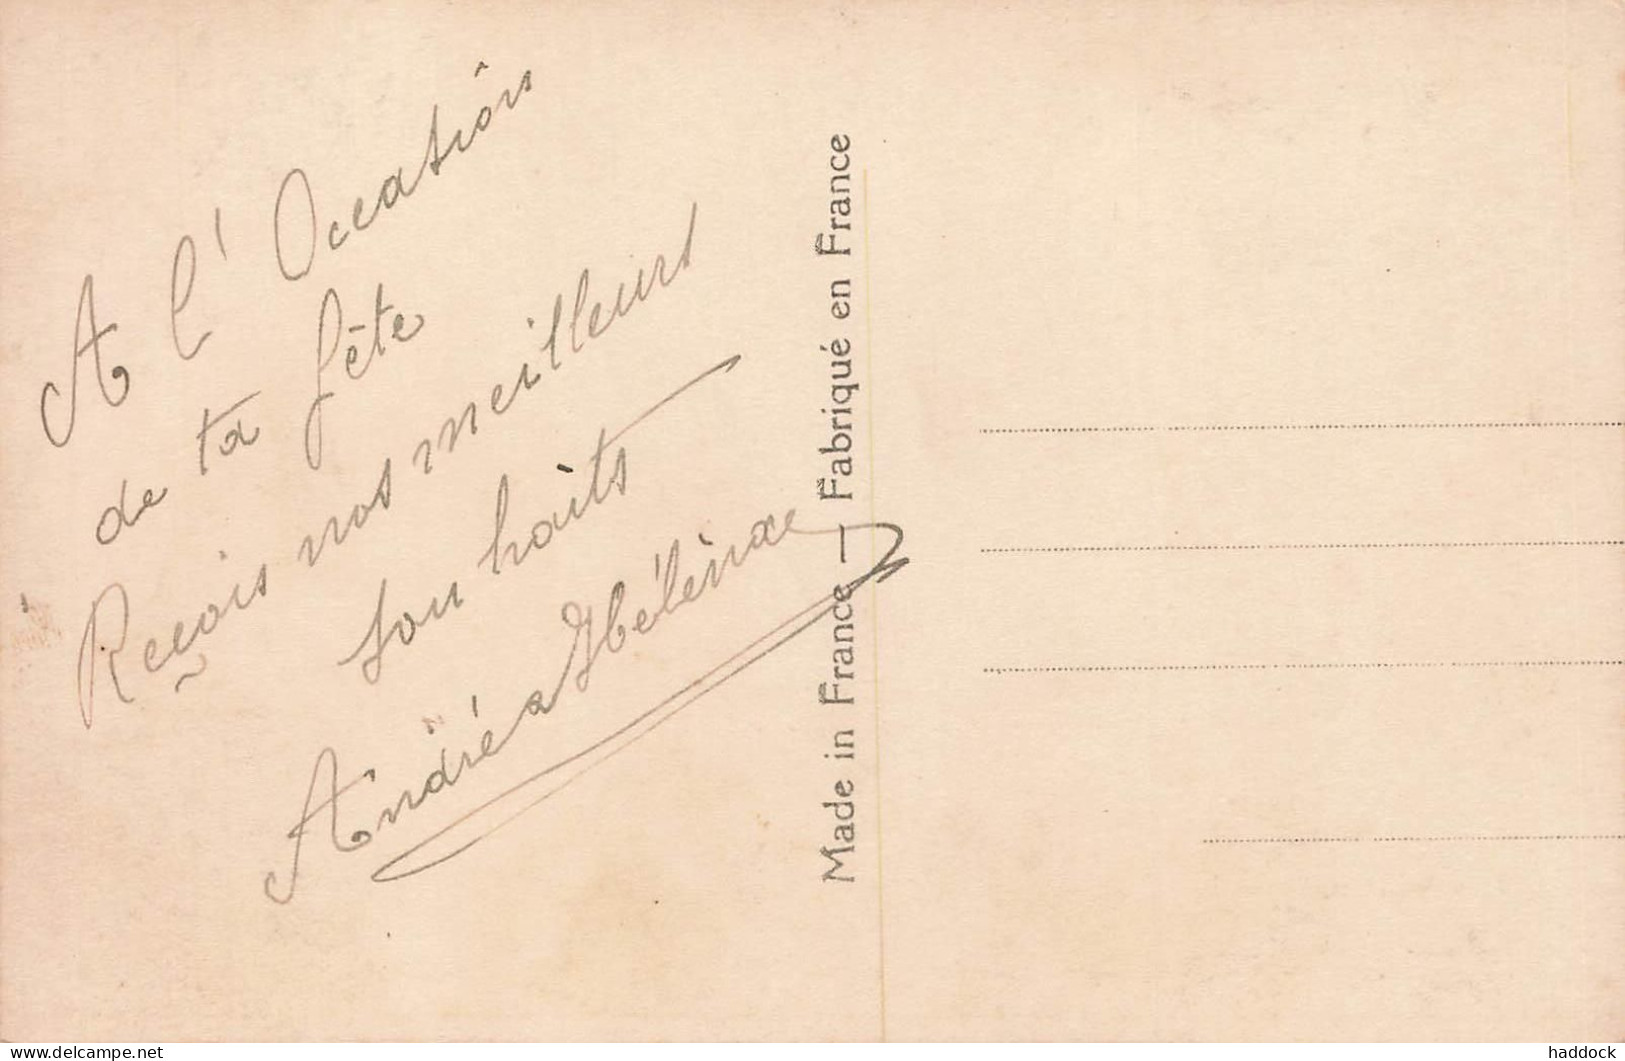 A l'Occation
de ta fête
Reçois nos meilleurs
souhaits
André & Hélène
Made in France — Fabriqué en France
www.delcampe.net
haddock